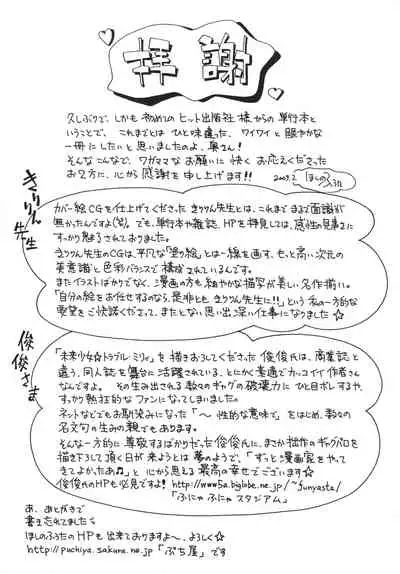 拝謝
久しぶりで、しかも初めてのヒット出版社様からの単行本と
いうことで、これまでとはひと味違った、ワイワイと賑やかな
一冊にしたいと思いましたのよ、奥さん!
そんなこんなで、ワガママなお願いに快くお応えくださった
お2方に、心から感謝を申し上げます!!
2009.2 ほしのふうた
きりりん先生
カバー絵CGを仕上げてくださったきりりん先生とは、これまでまるで面識が
無かったんですよ でも、単行本や雑誌、HPを拝見しては、感性の見事さに
すっかり魅了されておりました。
きりりん先生のCGは、平凡な「塗り絵」とは一線を画す、もっと高い次元の
美意識と色彩バランスで構成されているんです。
またイラストばかりでなく、漫画の方も細やかな描写が美しい名作揃い。
「自分の絵をお任せするのなら、是非ともきりりん先生に!!」という私の一方的な
要望をご快諾くださって、またとない思い出深い仕事になりました☆
俊俊さま
「未来少女☆トラブル・ミリィ」を描きおろしてくださった俊俊氏は、商業誌と
違う、同人誌を舞台に活躍されている、とにかく普通でカッコイイ作者さん
なんですよ。 その生み出される数々のギャグの破壊力にひと目ボレするや、
すっかり熱狂的なファンになってしまいました。
ネットなどでもお馴染みになった「〜性的な意味で」をはじめ、数々の
名文句の生みの親でもあります。
そんな一方的に尊敬するばかりだった俊俊氏に、まさか拙作のギャグパロを
描き下ろして頂く日が来ようとは夢のようで、「ずっと漫画家をやって
きてよかったあ♫」と心から思える最高の幸せでございます☆
俊俊氏のHPも必見ですよ! http://www5a.biglobe.ne.jp/~funyasta/
「ふにゃふにゃスタジアム」
あ、あとがきで
書き忘れてました
ほしのふうたのHPも出来ておりますよ〜、よろしく☆
http://puchiya.sakura.ne.jp「ぷち屋」です